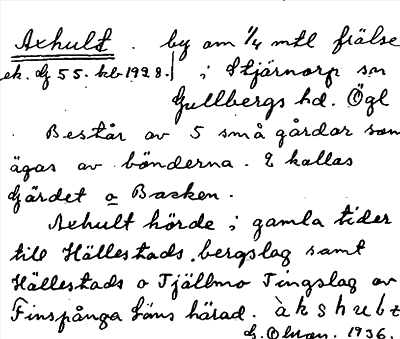 Axhult . by om 1/4 mtl frälse
ek. bl 55. kb 1928. i Stjärnorp sn
Gullbergs hd. Ögl
Består av 5 små gårdar som
ägas av bönderna. 2 kallas
Gärdet o Backen.
Axhult hörde i gamla tider
till Hällestads bergslag samt
Hällestads o Tjällmo Tingslag av
Finspånga läns härad. àkshult
G. Olsson. 1936.